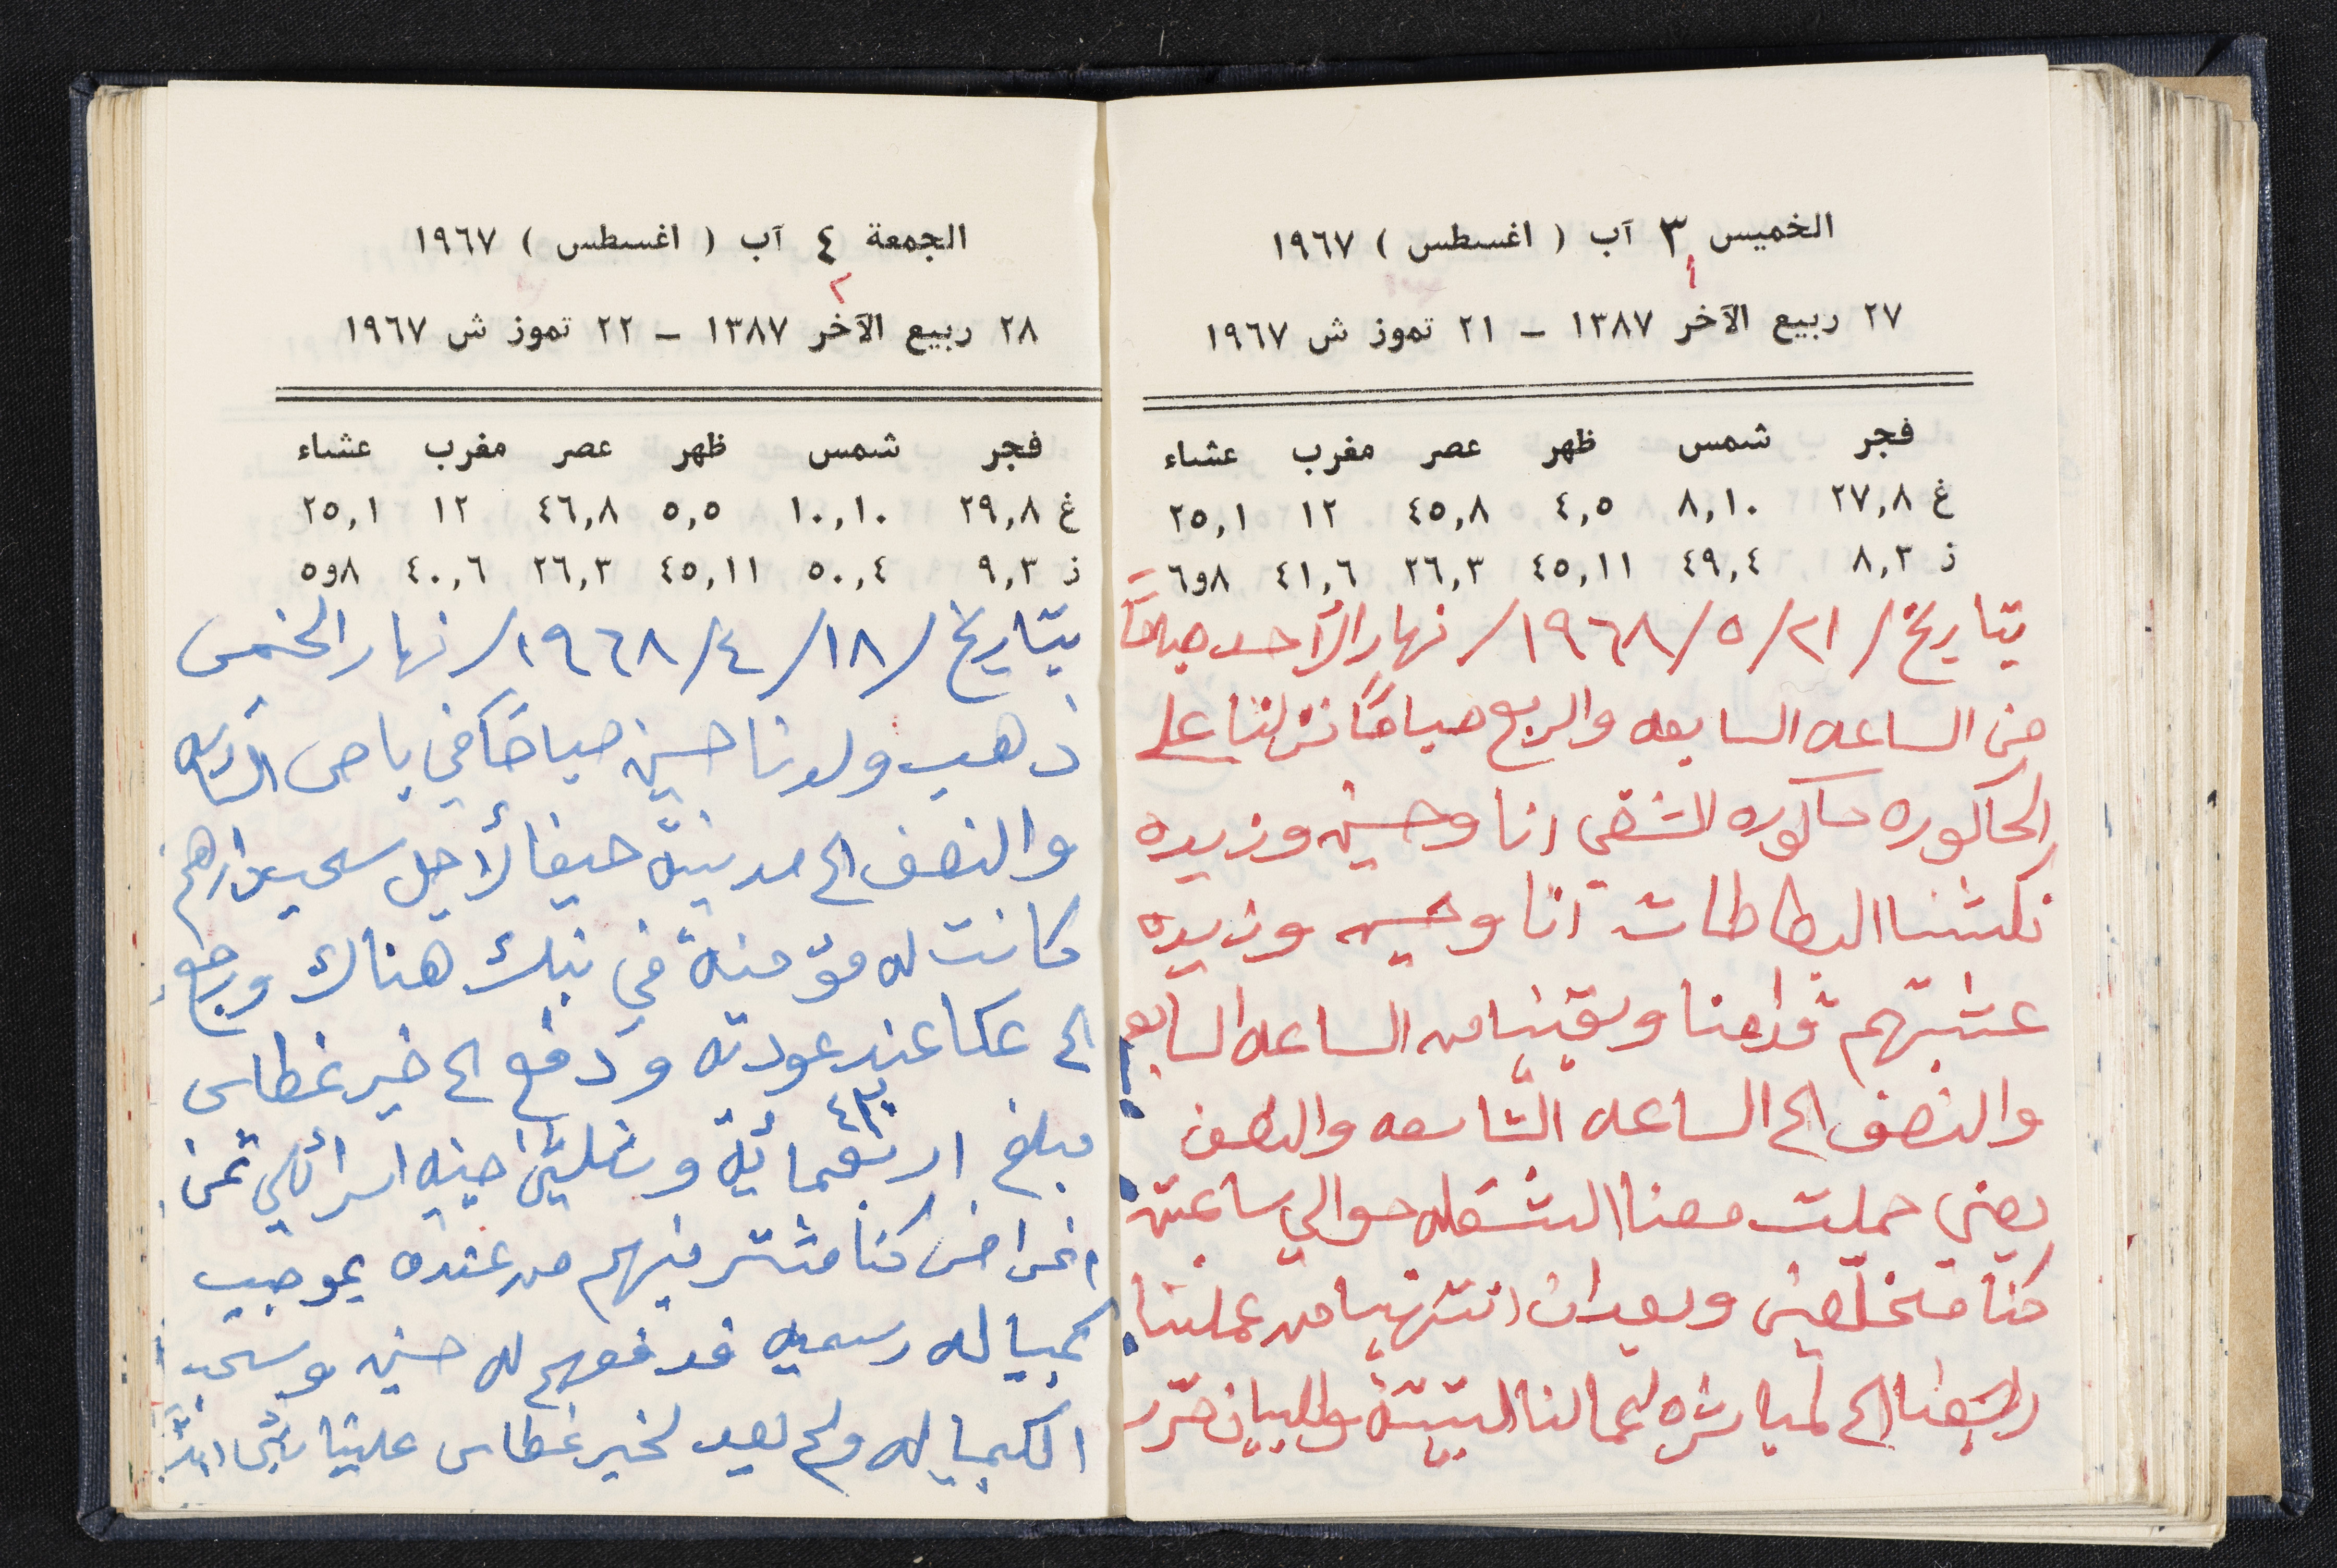 الخميس ٣ آب ( اغسطس ) ١٩٦٧
١
٢٧ ربيع الآخر ١٣٨٧ – ٢١ تموز ش ١٩٦٧
فجر شمس ظهر عصر مغرب عشاء
غ ٢٧,٨ ٨,١٠ ٤,٥ ٤٥,٨ ١٢ ٢٥,١
ذ ٨,٣ ٤٩,٤ ٤٥,١١ ٢٦,٣ ٤١,٦ ٨و٦
بتاريخ /٢١/٥/١٩٦٨/ نهار الأحد صباحًا
من الساعه السابعه والربع صباحًا نزلنا على
الحاكوره حاكوره الشقي انا وحسين وزيده
نكشنا البطاطات انا وحسين وزيده
عشبتهم قدامنا وبقينا من الساعه السابعه
والنصف الى الساعه التاسعه والنصف
يعني حملت معنا الشغله حوالي ساعتين
كنا مخلصين وبعد ان انتهينا من عملنا
رجعنا الى لمباشره اعمالنا البيتية
الجمعة ٤ آب ( اغسطس ) ١٩٦٧
٢
٢٨ ربيع الآخر ١٣٨٧ – ٢٢ تموز ش ١٩٦٧
فجر شمس ظهر عصر مغرب عشاء
غ ٢٩,٨ ١٠,١٠ ٥,٥ ٤٦,٨ ١٢ ٢٥,١
ذ ٩,٣ ٥٠,٤ ٤٥,١١ ٢٦,٣ ٤٠,٦ ٨و٥
بتاريخ /١٨/٤/١٩٦٨/ نهار الخميس
ذهب ولدنا حسين صباحًا في باص السادسه
والنصف الى مدينة حيفا لأجل سحب دراهم
كانت له مؤمنة في بنك هناك ورجع
الى عكا عند عودته ودفع الى خير غطاس
٤٣٠
مبلغ اربعمائة وثلثين جنيه اسرائلي ثمن
اغراض كنا مشترينهم من عنده بموجب
كمبياله رسميه فدفعهم له حسين وسحب
الكمبياله ولم بعد لخير غطاس علينا شيء ابدًا